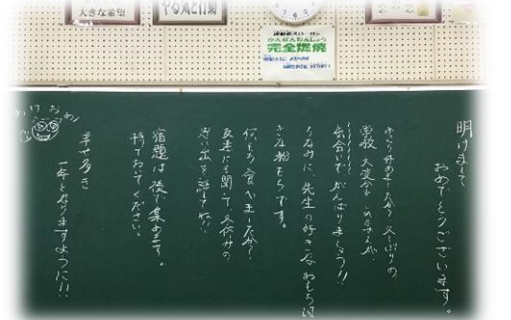 大きな希望
やる気と行動
完全燃焼
明けまして
おめでとうございます。
学校、大変かもしれませんが、
気合いで、がんばりましょう!!
ちなみに、先生の好きなおもちは
きな粉もちです。
何もち食べましたか?
友達にも聞いて、冬休みの
思い出を話してね!!
宿題は後で集めます。
待っておいてください。
幸せ多き
一年となりますように!!
あけおめ